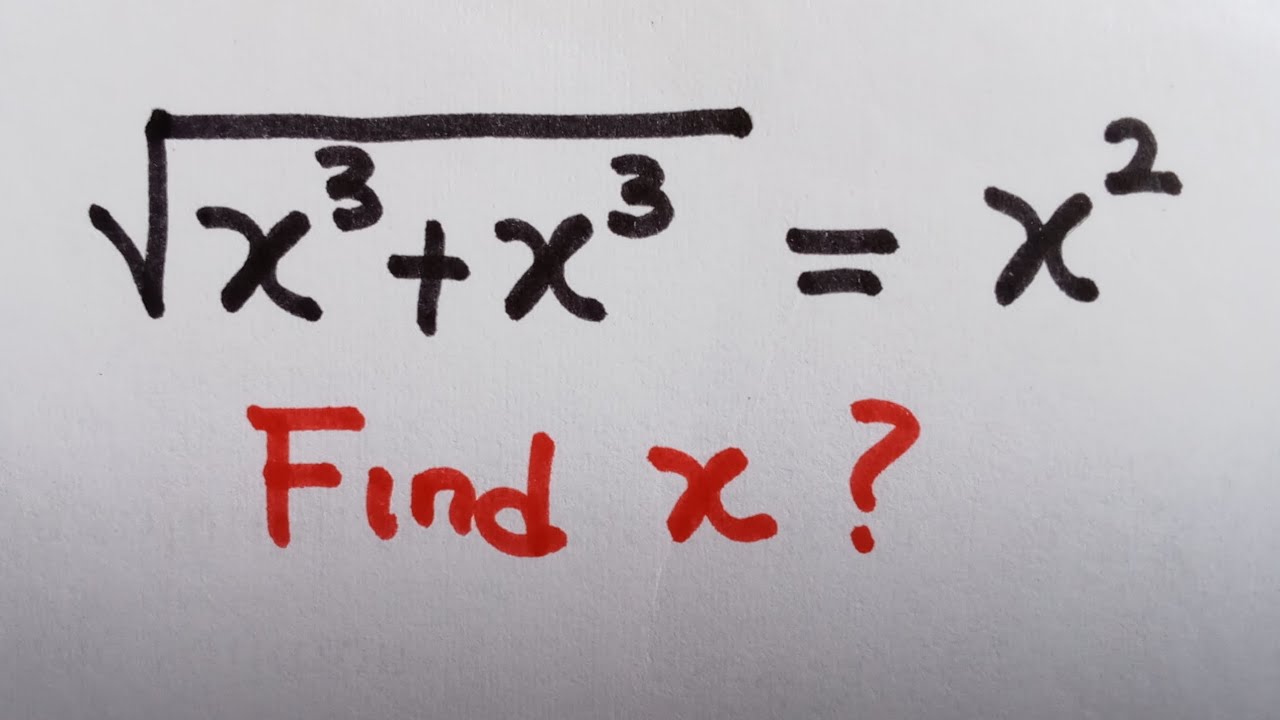 √(x³+x³) = x²
Find x?